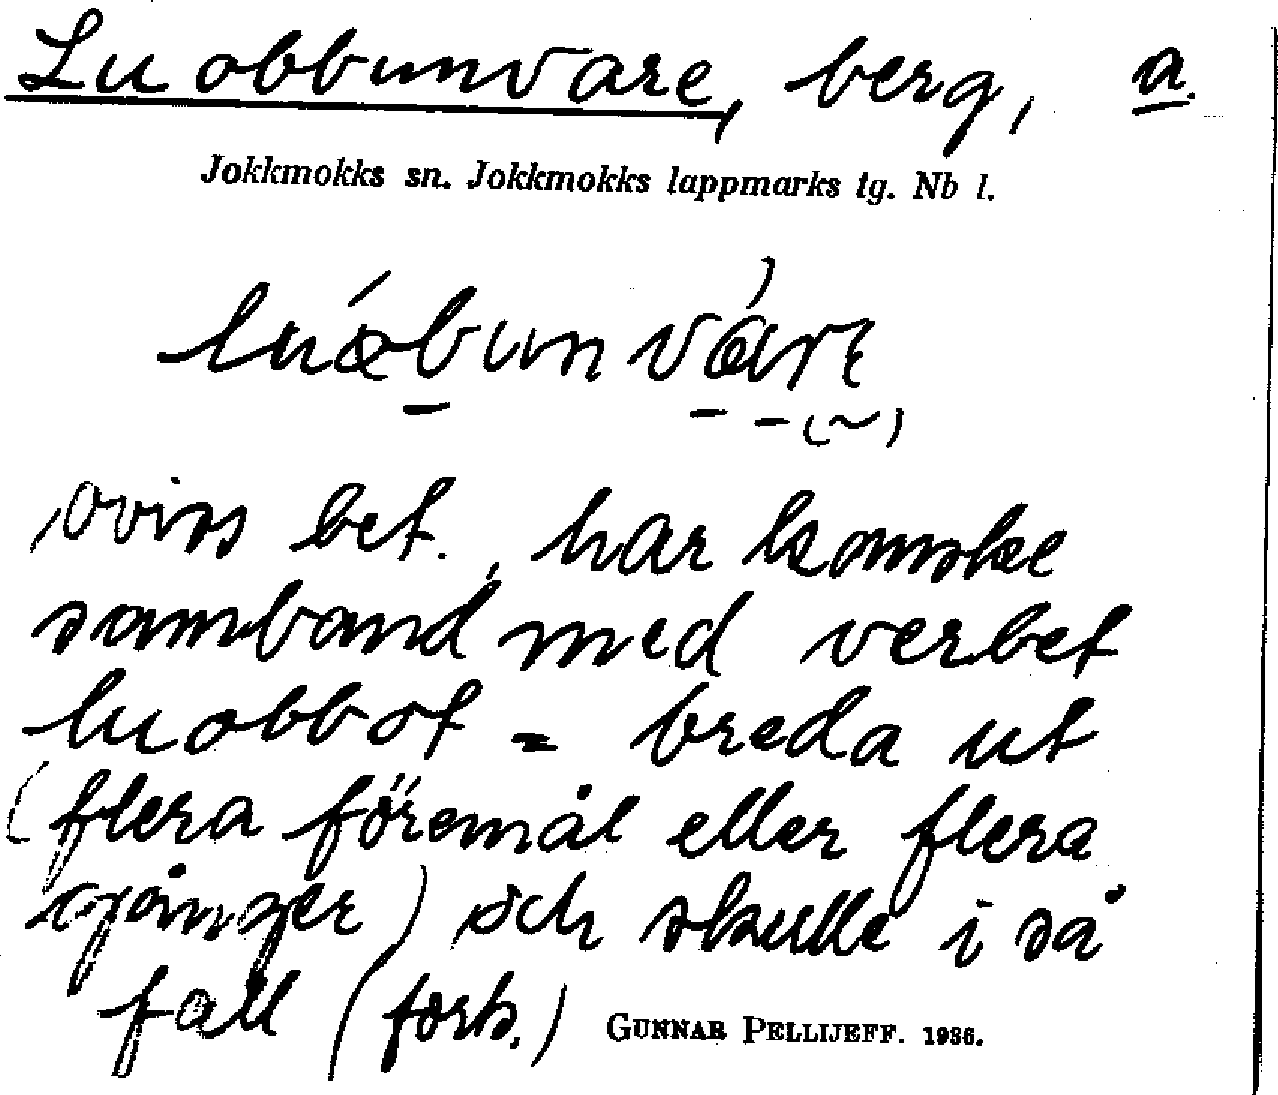 Luobbunvare, berg, a.
Jokkmokks sn. Jokkmokks lappmarks tg. Nb l.
luɑ́bunvárɛ
oviss bet., har kanske
samband med verbet
luobbot = breda ut
(flera föremål eller flera
gånger) och skulle i så
fall (forts.) GUNNAR PELLIJEFF. 1936.